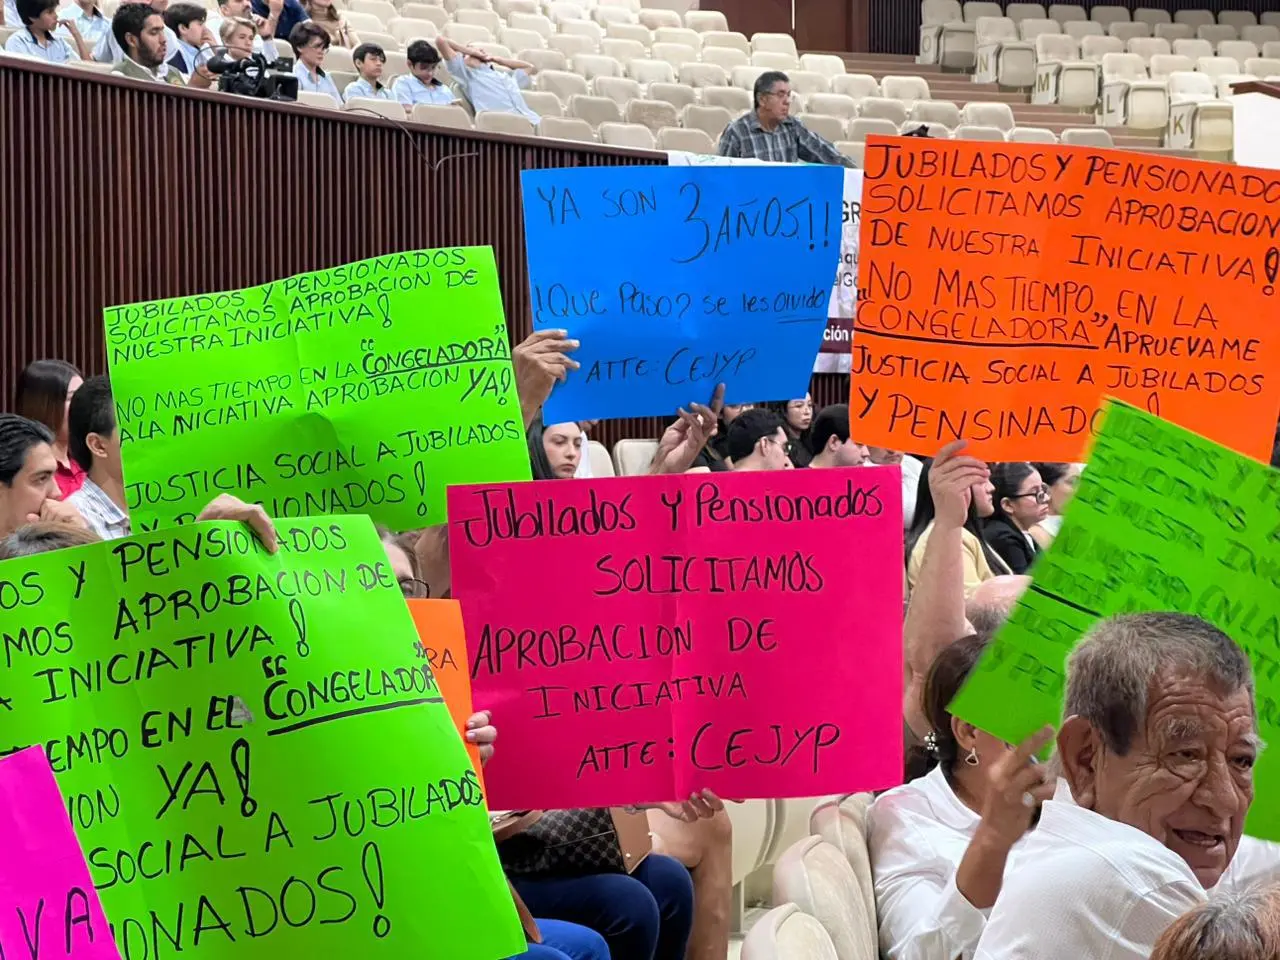 YA SON 3 AÑOS!!
¿QUE PASO? se les olvido
ATTE: CEJYP
JUBILADOS Y PENSIONADO
SOLICITAMOS APROBACION
DE NUESTRA INICIATIVA!
"NO MAS TIEMPO, EN LA
CONGELADORA" APRUEVAME
JUSTICIA SOCIAL A JUBILADOS
Y PENSINADO
JUBILADOS Y PENSIONADOS
SOLICITAMOS APROBACION DE
NUESTRA INICIATIVA!
NO MAS TIEMPO EN LA "CONGELADORA"
A LA INICIATIVA APROBACION YA!
JUSTICIA SOCIAL A JUBILADOS
Y PENSIONADOS!
Jubilados Y Pensionados
SOLICITAMOS
APROBACION DE
INICIATIVA
ATTE: CEJYP
OS Y PENSIONADOS
MOS APROBACION DE
A INICIATIVA!
EMPO EN EL "CONGELADOR
ION YA!
SOCIAL A JUBILADOS
IONADOS!
RA
IVA
GR
N
M
L
K